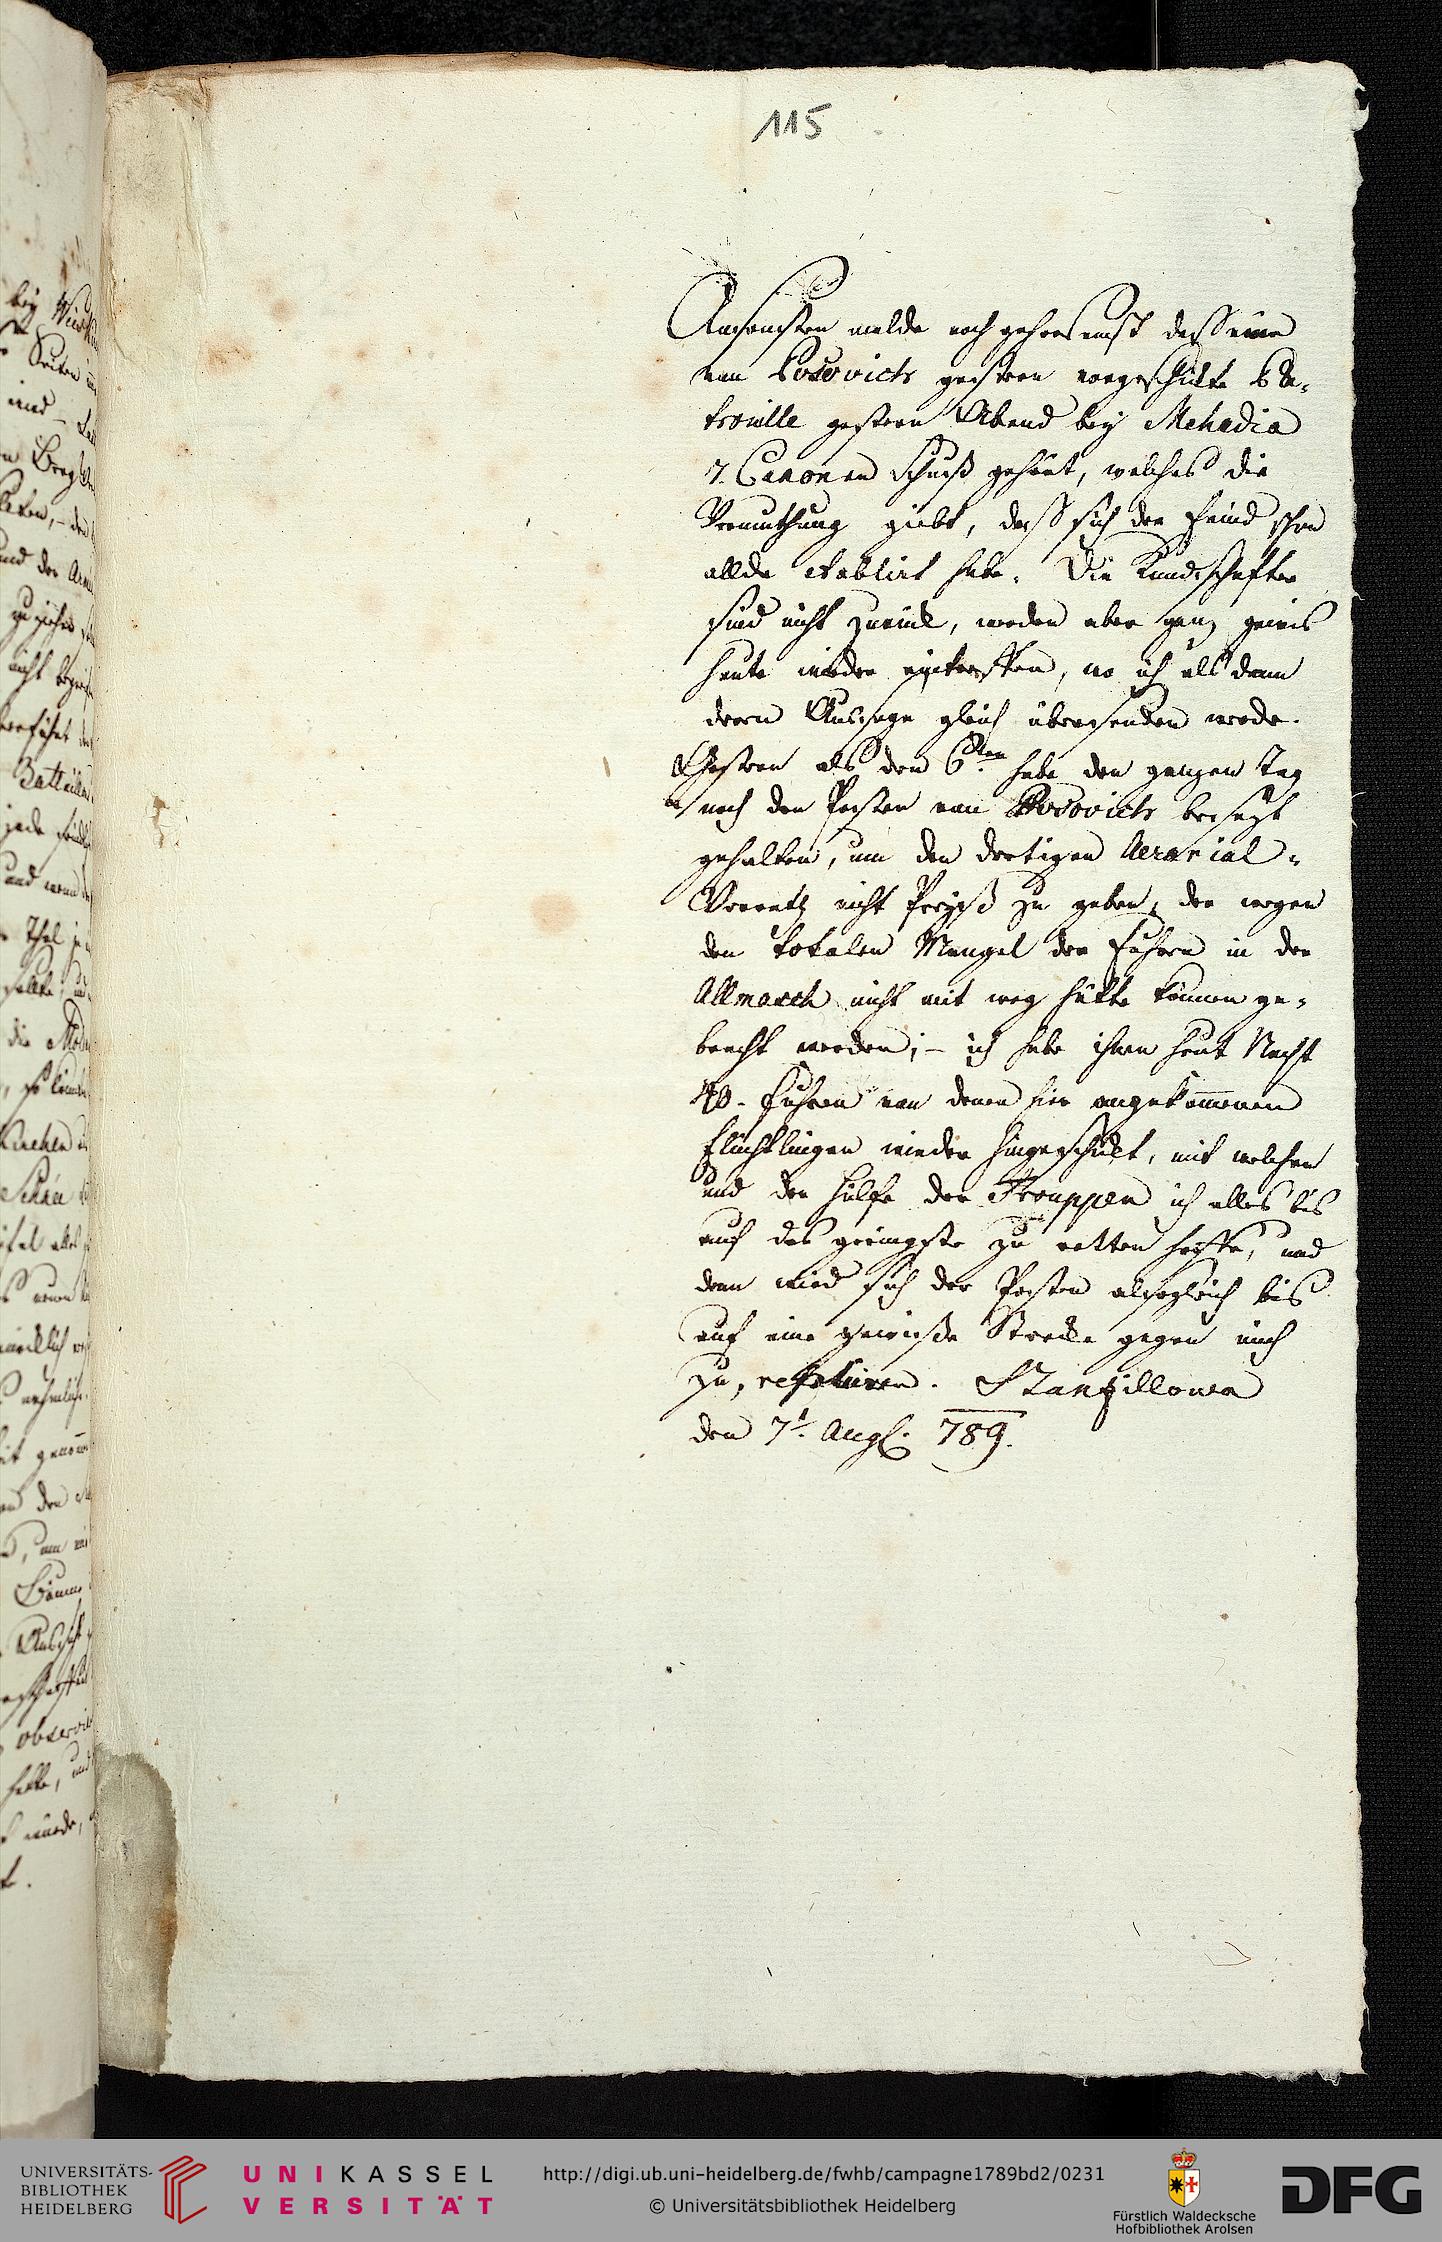 115
Ansonsten melde noch gehorsamst daß eine
von Bosovich gestern vorgeschickte Pa-
trouille gestern Abend bey Mehadia
7. Canonen Schuß gehört, welches die
Vermuthung giebt, daß sich der Feind schon
allda etablirt habe. Die Kundschafter
sind nicht zurück, werden aber ganz gewis
heute wieder eintreffen, wo ich als dann
deren Aussage gleich übersenden werde.
Gestern als den 6ten habe den ganzen Tag
noch den Posten von Bosovich besezt
gehalten, um den dortigen Aerarial-
Vorrath nicht Preyß zu geben, der wegen
den totalen Mangel der Fuhren in der
Allmasch nicht mit weg hätte können ge-
bracht werden; – ich habe ihm heut Nacht
40. Fuhren von denen hier angekom̄enen
Flüchtlingen wieder hingeschickt, mit welchen
und der Hülfe der Trouppen ich alles bis
auf das geringste zu retten hoffe, und
dann wird sich der Posten alsogleich bis
auf eine gewisse Strecke gegen mich
zu, repliiren.
den 7t. Aug. 789.
bey
und
Berg
und der
zu ziehen
nicht
Thal
die
UNIVERSITÄTS-
BIBLIOTHEK
HEIDELBERG
UNIKASSEL
VERSITÄT
http://digi.ub.uni-heidelberg.de/fwhb/campagne1789bd2/0231
© Universitätsbibliothek Heidelberg
Fürstlich Waldecksche
Hofbibliothek Arolsen
DFG